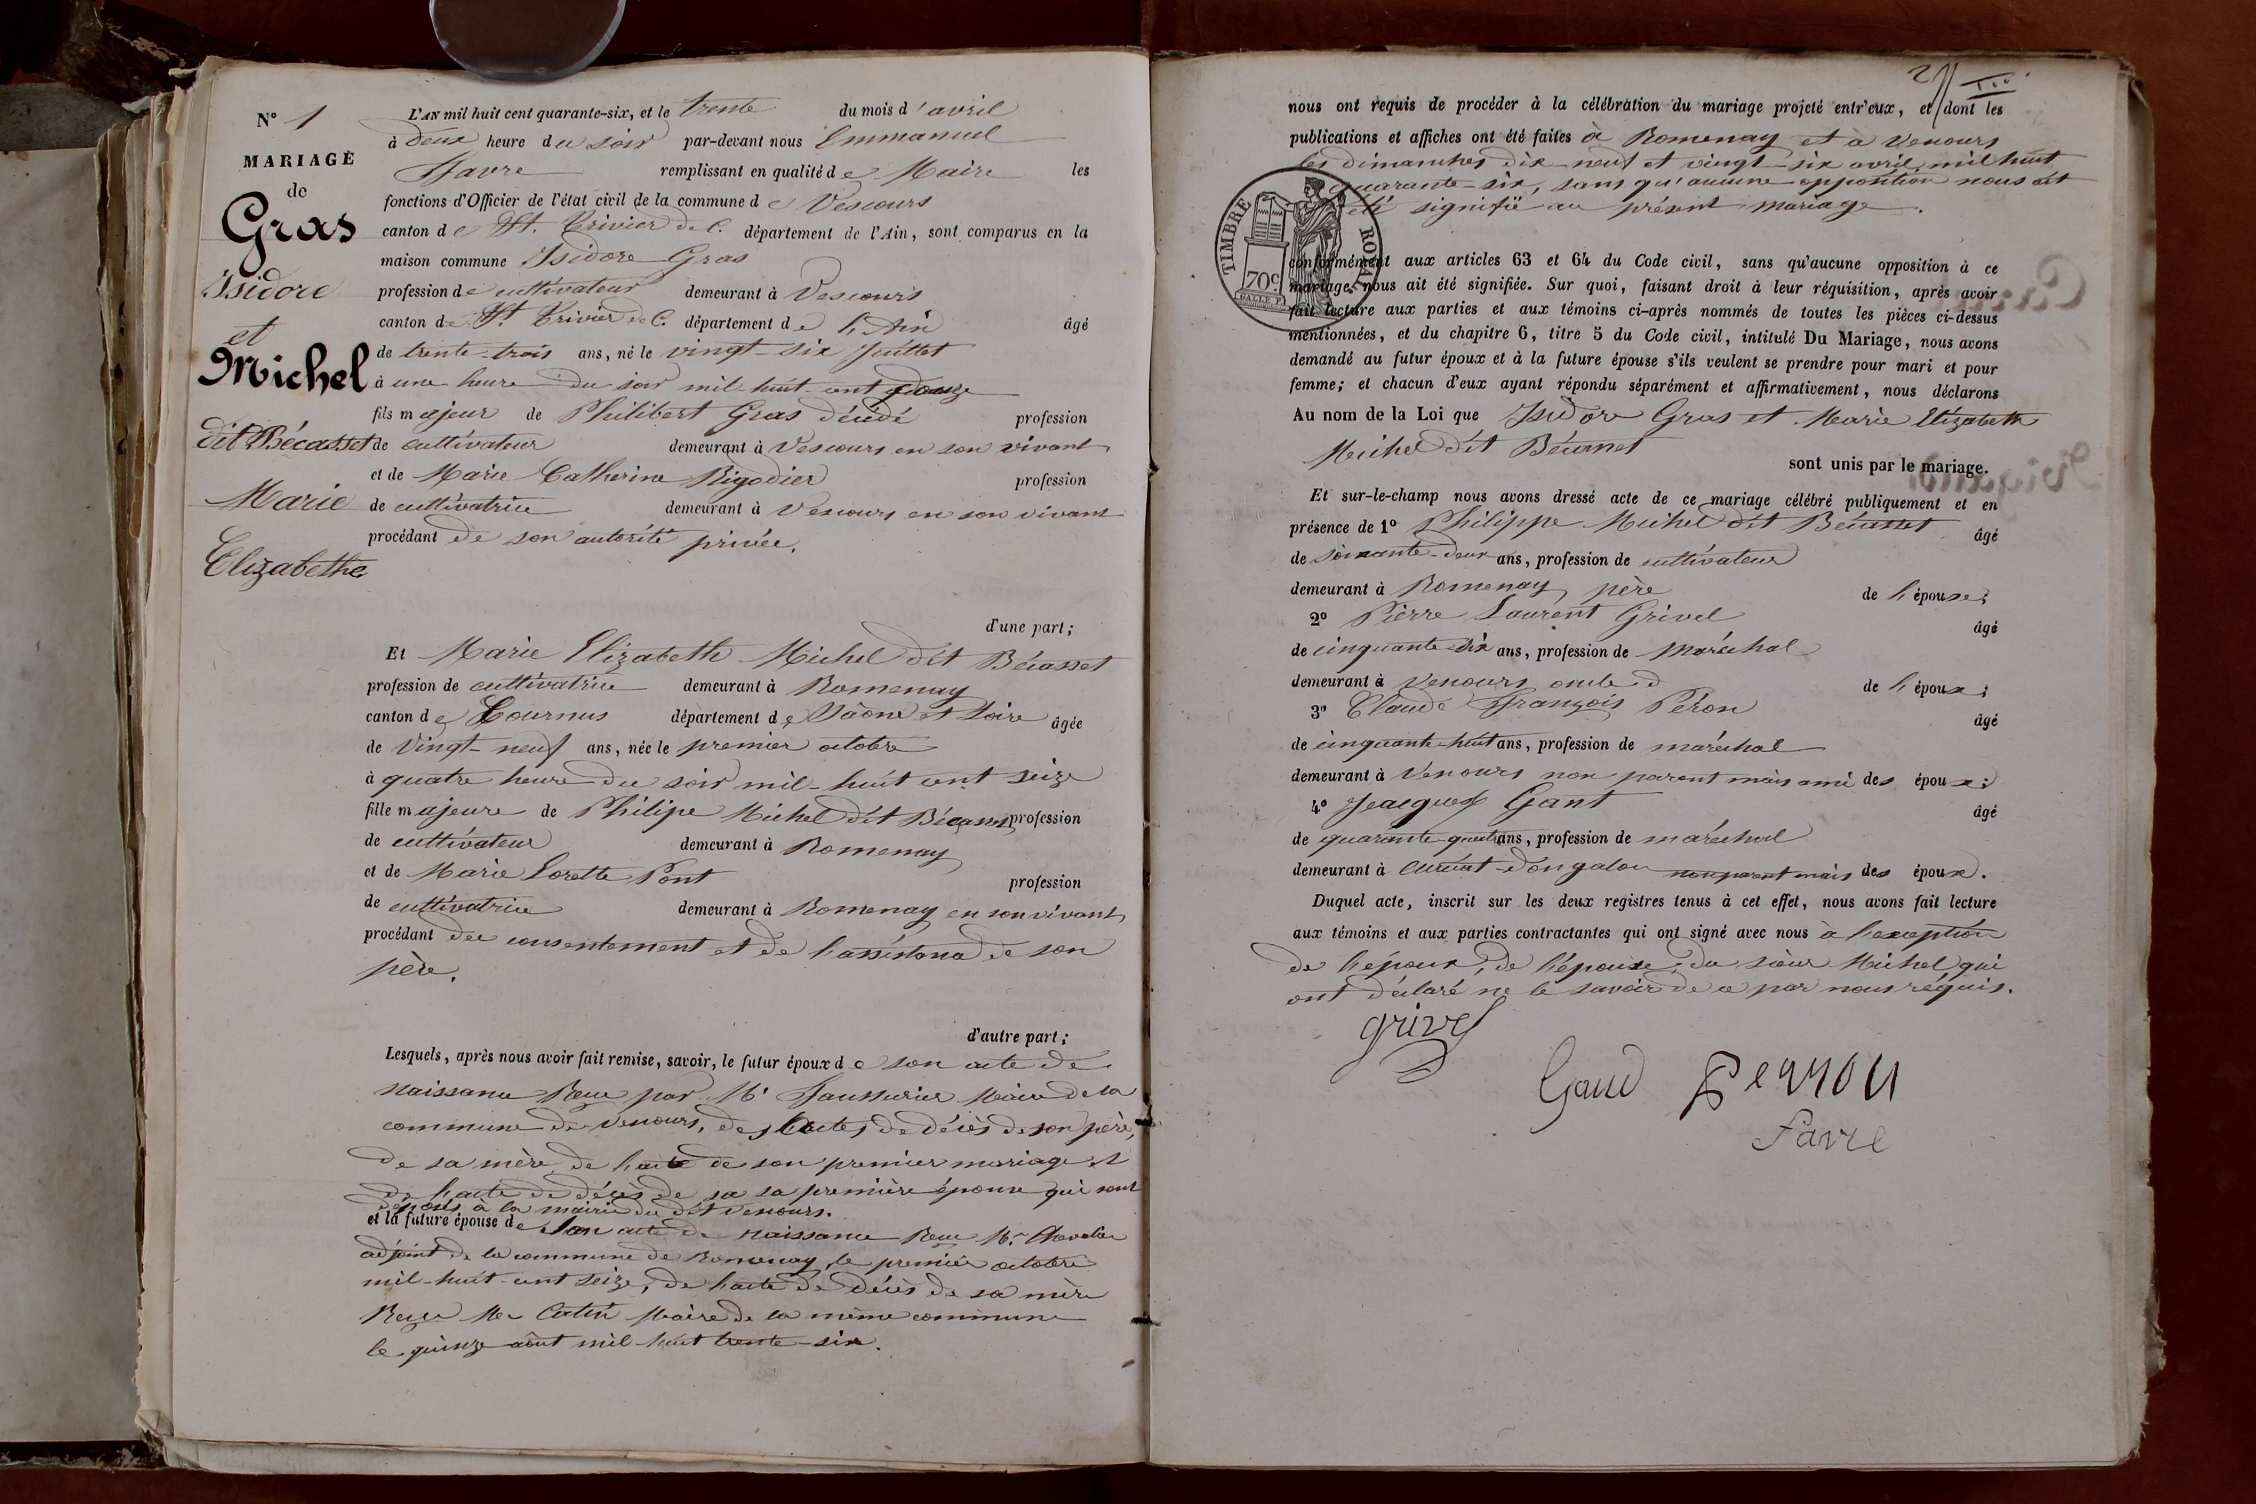 N° 1
MARIAGE
de
Gras
Isidore
et
Michel
dit Bécasset
Marie
Elizabethe
L'AN mil huit cent quarante-six, et le trente du mois d'avril
à deux heure du soir par-devant nous Emmanuel
Favre remplissant en qualité de Maire les
fonctions d'Officier de l'état civil de la commune de Vescours
canton de St. Trivier de C. département de l'Ain, sont comparus en la
maison commune Isidore Gras
profession de cultivateur demeurant à Vescours
canton de St. Trivier de C. département de l'Ain âgé
de trente-trois ans, né le vingt-six Juillet
à une heure du soir mil huit cent douze
fils majeur de Philibert Gras décédé profession
de cultivateur demeurant à Vescours en son vivant
et de Marie Catherine Rigodier profession
de cultivatrice demeurant à Vescours en son vivant
procédant de son autorité privée.
d'une part;
Et Marie Elizabeth Michel dit Bécasset
profession de cultivatrice demeurant à Romenay
canton de Tournus département de Sâone et Loire âgée
de vingt-neuf ans, née le premier octobre
à quatre heure du soir mil-huit cent seize
fille majeure de Philipe Michel dit Bécasset profession
de cultivateur demeurant à Romenay
et de Marie Lorette Pont profession
de cultivatrice demeurant à Romenay en son vivant
procédant du consentement et de l'assistance de son
père.
d'autre part;
Lesquels, après nous avoir fait remise, savoir, le futur époux de son acte de
naissance Reçu par Mr Maire de la
commune de Vescours, des actes de décès de son père,
de sa mère, de l'acte de son premier mariage et
de l'acte de décès de sa sa première épouse qui sont
déposés à la mairie du dit Vescours.
et la future épouse de son acte de naissance Reçu Mr. Chevalier
adjoint de la commune de Romenay, le premier octobre
mil-huit-cent seize, de l'acte de décès de sa mère
Reçu Mr Maire de la même commune
le quinze août mil-huit trente-six.
2
nous ont requis de procéder à la célébration du mariage projeté entr'eux, et dont les
publications et affiches ont été faites à Romenay et à Vescours
les dimanches dix-neuf et vingt-six avril mil huit
quarante-six, sans qu'aucune opposition nous ait
été signifié au présent mariage.
TIMBRE ROYAL
70c.
conformément aux articles 63 et 64 du Code civil, sans qu'aucune opposition à ce
mariage nous ait été signifiée. Sur quoi, faisant droit à leur réquisition, après avoir
fait lecture aux parties et aux témoins ci-après nommés de toutes les pièces ci-dessus
mentionnées, et du chapitre 6, titre 5 du Code civil, intitulé Du Mariage, nous avons
demandé au futur époux et à la future épouse s'ils veulent se prendre pour mari et pour
femme; et chacun d'eux ayant répondu séparément et affirmativement, nous déclarons
Au nom de la Loi que Isidore Gras et Marie Elizabeth
Michel dit Bécasset
sont unis par le mariage.
Et sur-le-champ nous avons dressé acte de ce mariage célébré publiquement et en
présence de 1° Philippe Michel dit Bécasset âgé
de soixante-deux ans, profession de cultivateur
demeurant à Romenay, père de l'épouse;
2° Pierre Laurent Grivel âgé
de cinquante-six ans, profession de maréchal
demeurant à Vescours oncle d de l'époux;
3° Claude François Péron âgé
de cinquante-huit ans, profession de maréchal
demeurant à Vescours non parent mais ami des époux;
4° Jeacques Gant âgé
de quarante-quatre ans, profession de maréchal
demeurant à Curciat-Dongalon non parent mais des époux.
Duquel acte, inscrit sur les deux registres tenus à cet effet, nous avons fait lecture
aux témoins et aux parties contractantes qui ont signé avec nous à l'exception
de l'époux, de l'épouse, du sieur Michel qui
ont déclaré ne le savoir de ce par nous réquis.
grivel
Gaud Perron
Favre